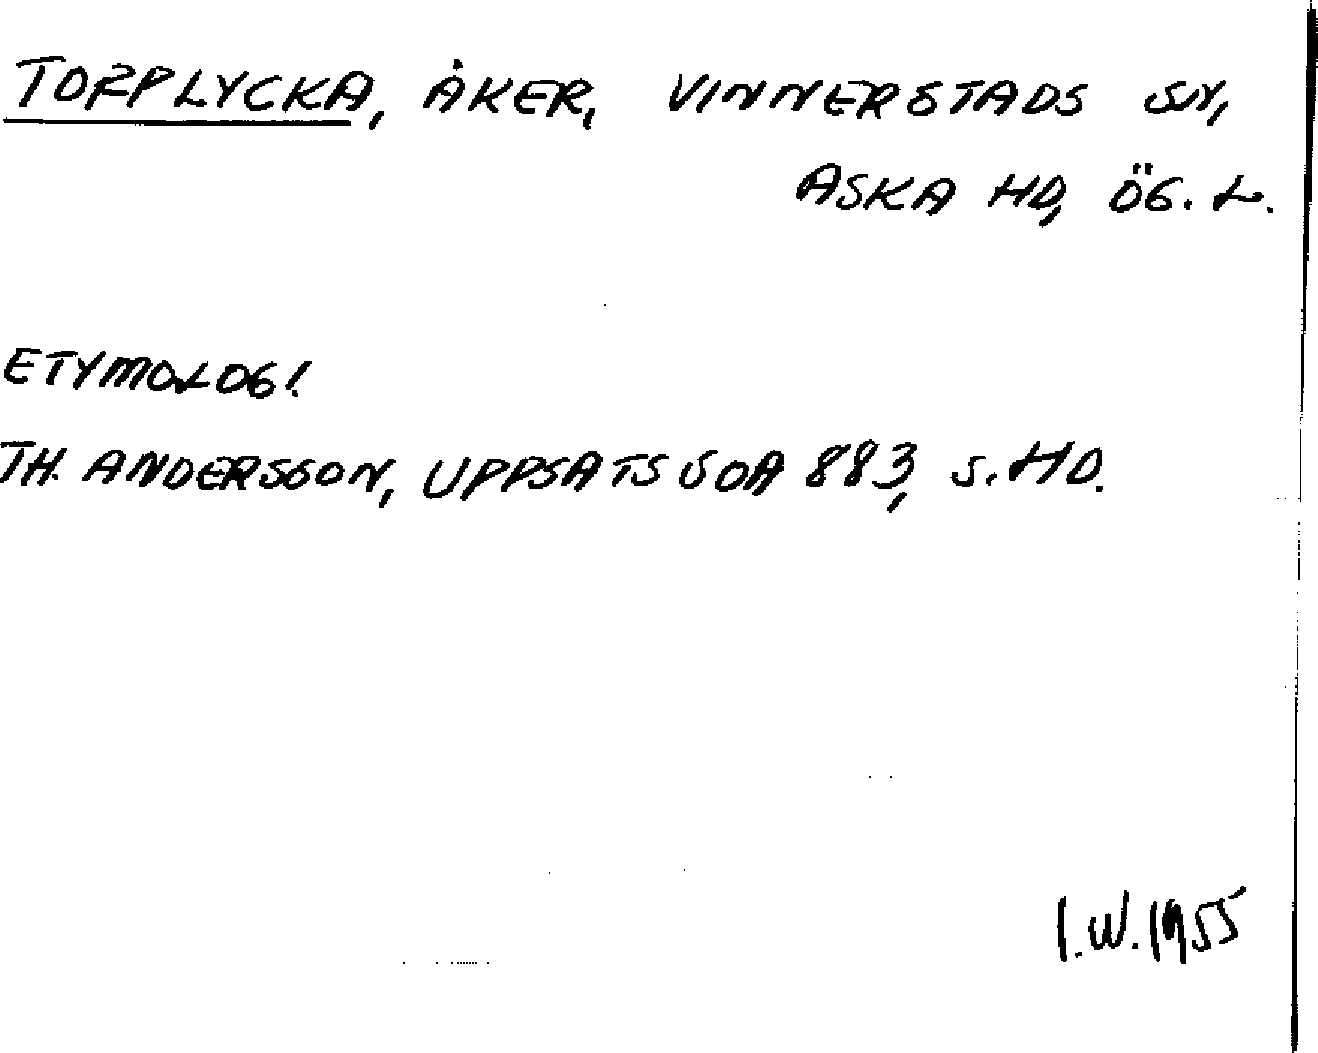 TORPLYCKA, ÅKER, VINNERSTADS SN,
ASKA HD, ÖG. L.
ETYMOLOGI.
TH. ANDERSSON, UPPSATS SOA 883, S. HD.
I.W. 1955